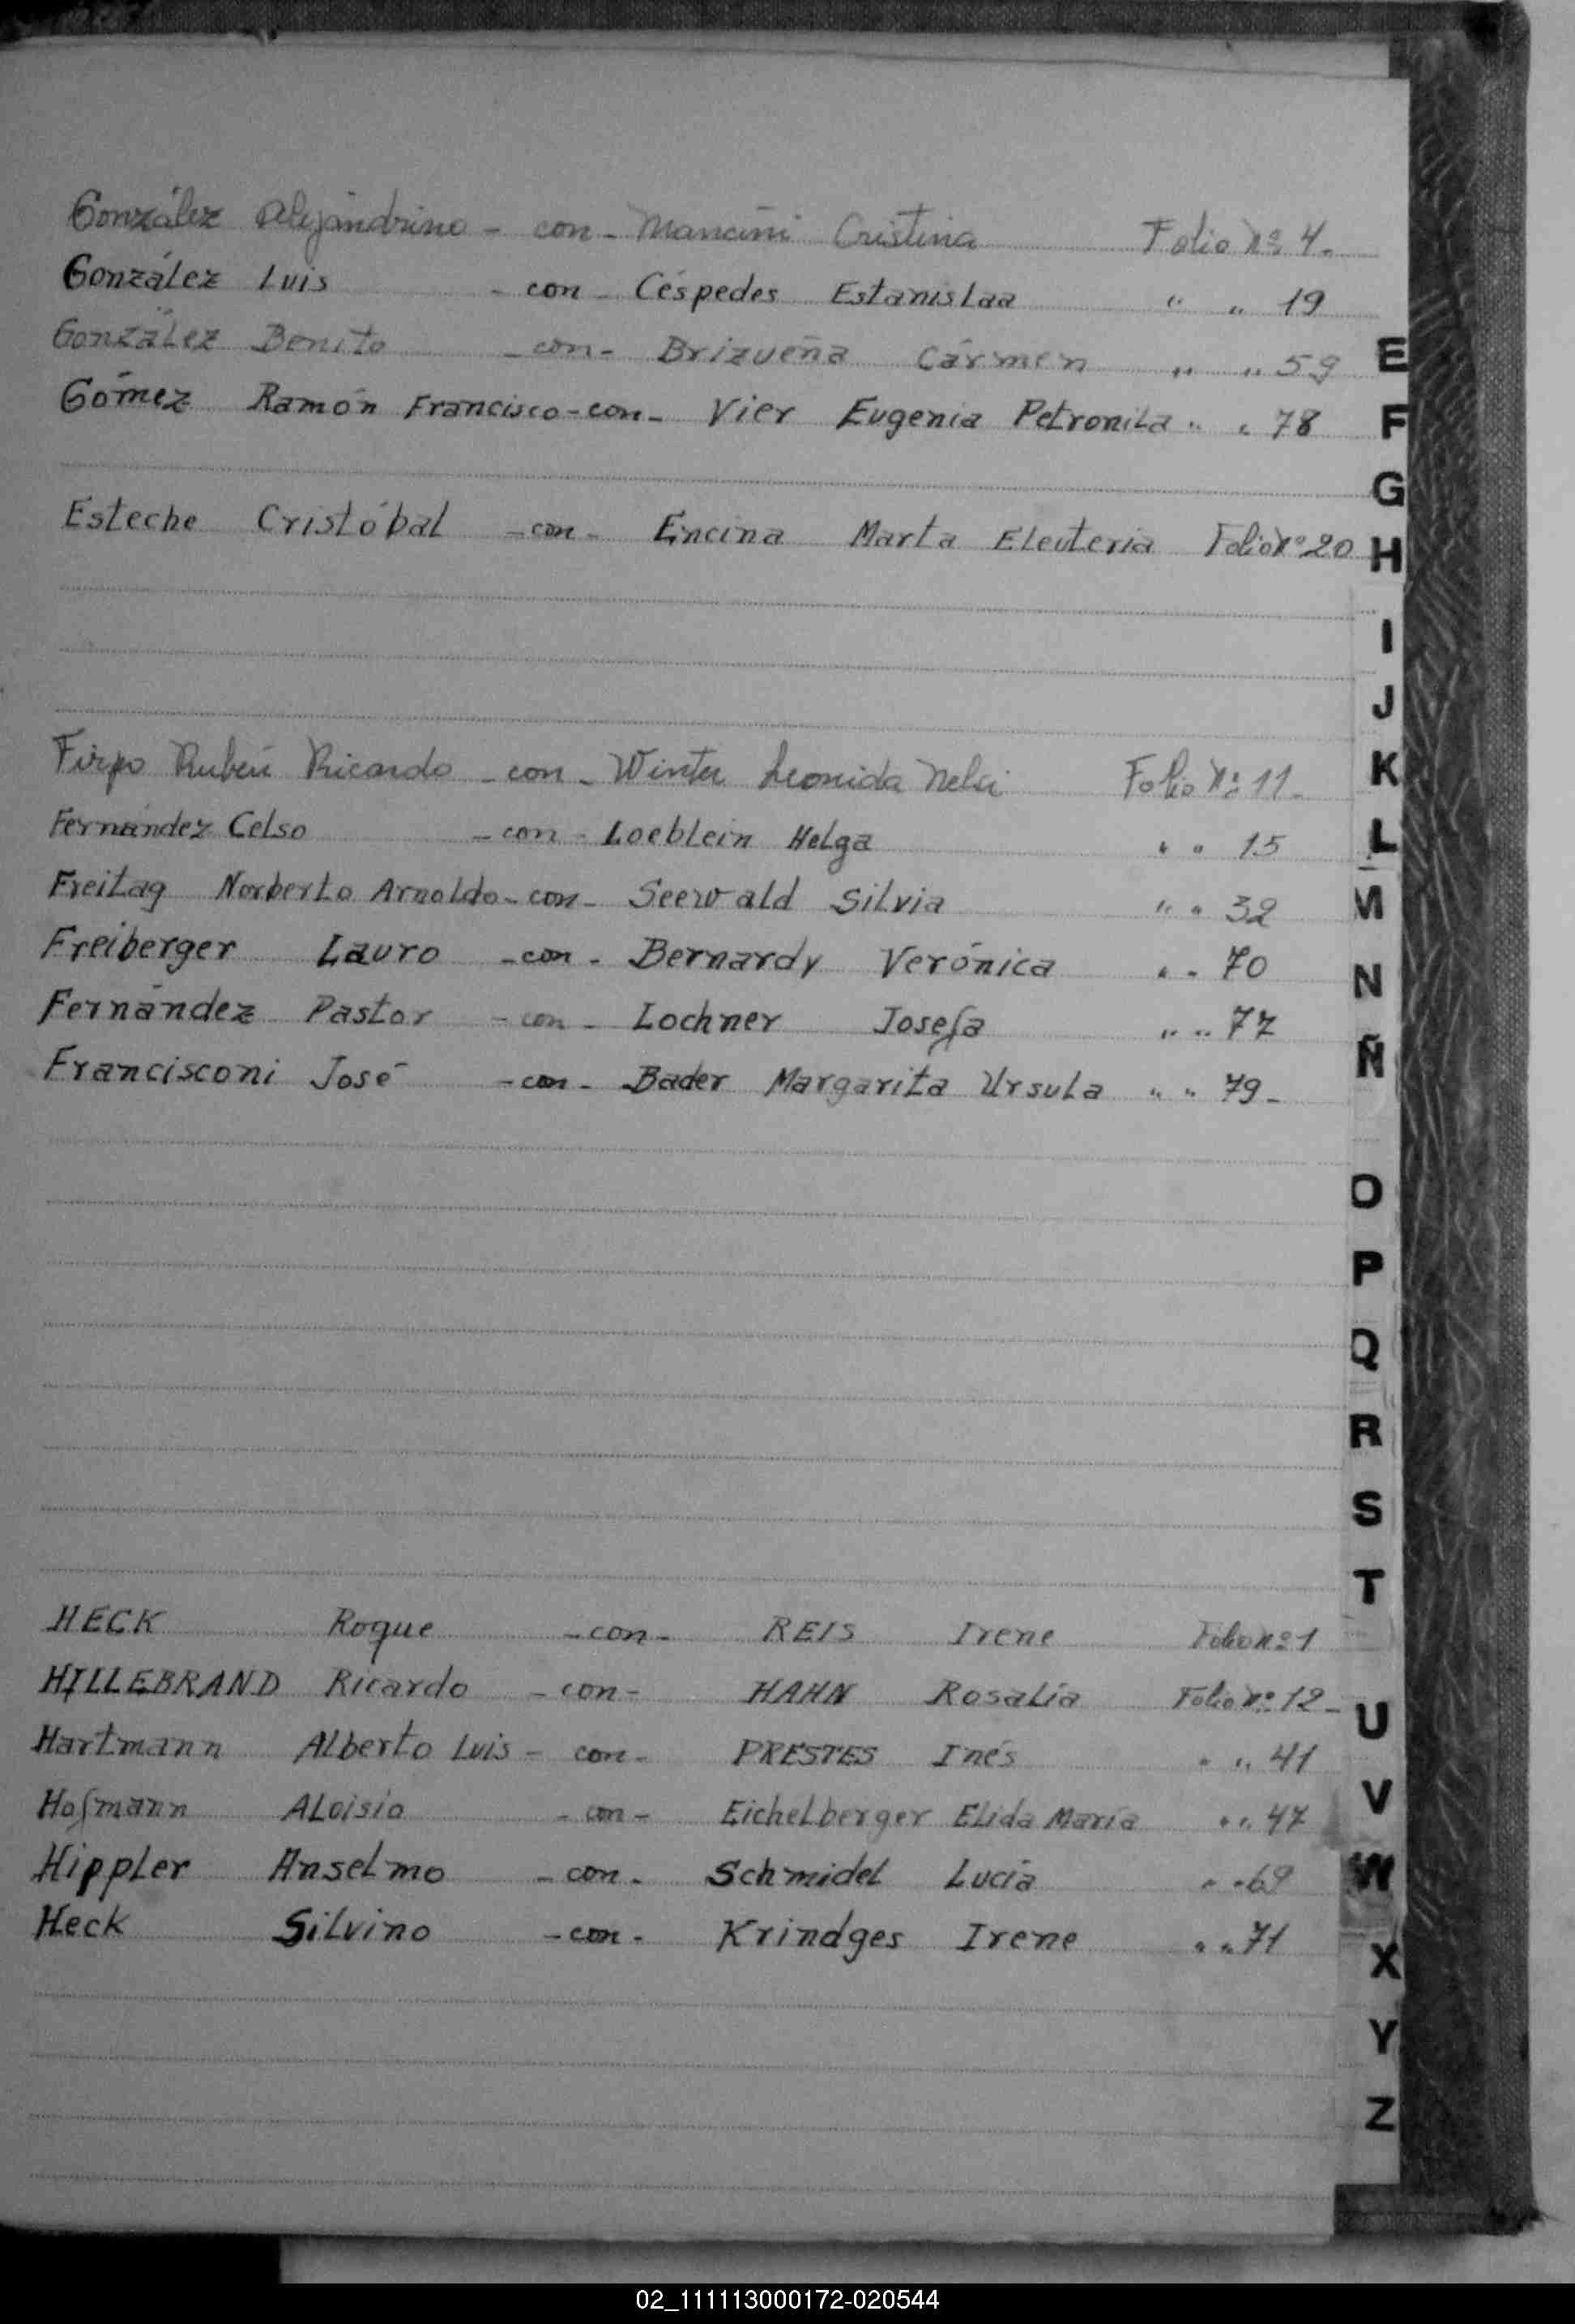 González Alejandrino - con - Mancini Cristina Folio Nº 4.
González Luis - con - Céspedes Estanislaa " " 19
González Benito - con - Brizueña Cármen " " 59
Gómez Ramón Francisco - con - Vier Eugenia Petronila " " 78
Esteche Cristóbal - con - Encina Marta Eleuteria Folio Nº 20
Firpo Rubén Ricardo - con - Winter Leonida Nelsi Folio Nº 11-
Fernández Celso - con - Loeblein Helga " " 15
Freitag Norberto Arnoldo - con - Seewald Silvia " " 32
Freiberger Lauro - con - Bernardy Verónica " " 70
Fernández Pastor - con - Lochner Josefa " " 77
Francisconi José - con - Bader Margarita Ursula " " 79-
HECK Roque - con - REIS Irene Folio Nº 1
HILLEBRAND Ricardo - con - HAHN Rosalía Folio Nº 12-
Hartmann Alberto Luis - con - PRESTES Inés " " 41
Hofmann ALoisio - con - Eichelberger Elida María " " 47
Hippler Anselmo - con - Schmidel Lucía " " 69
Heck Silvino - con - Krindges Irene " " 71
E
F
G
H
I
J
K
L
M
N
Ñ
O
P
Q
R
S
T
U
V
W
X
Y
Z
02_111113000172-020544